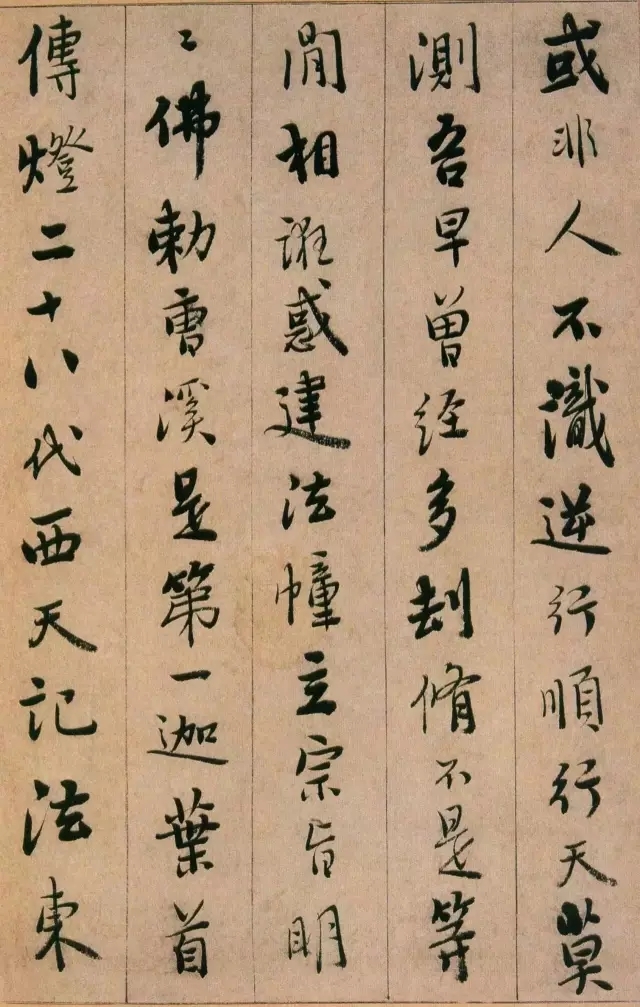 或非人不識逆行順行天莫
測吾早曾經多刼脩不是等
閒相誑惑建法幢立宗旨明
〻佛勑曹溪是第一迦葉首
傳燈二十八代西天記法東